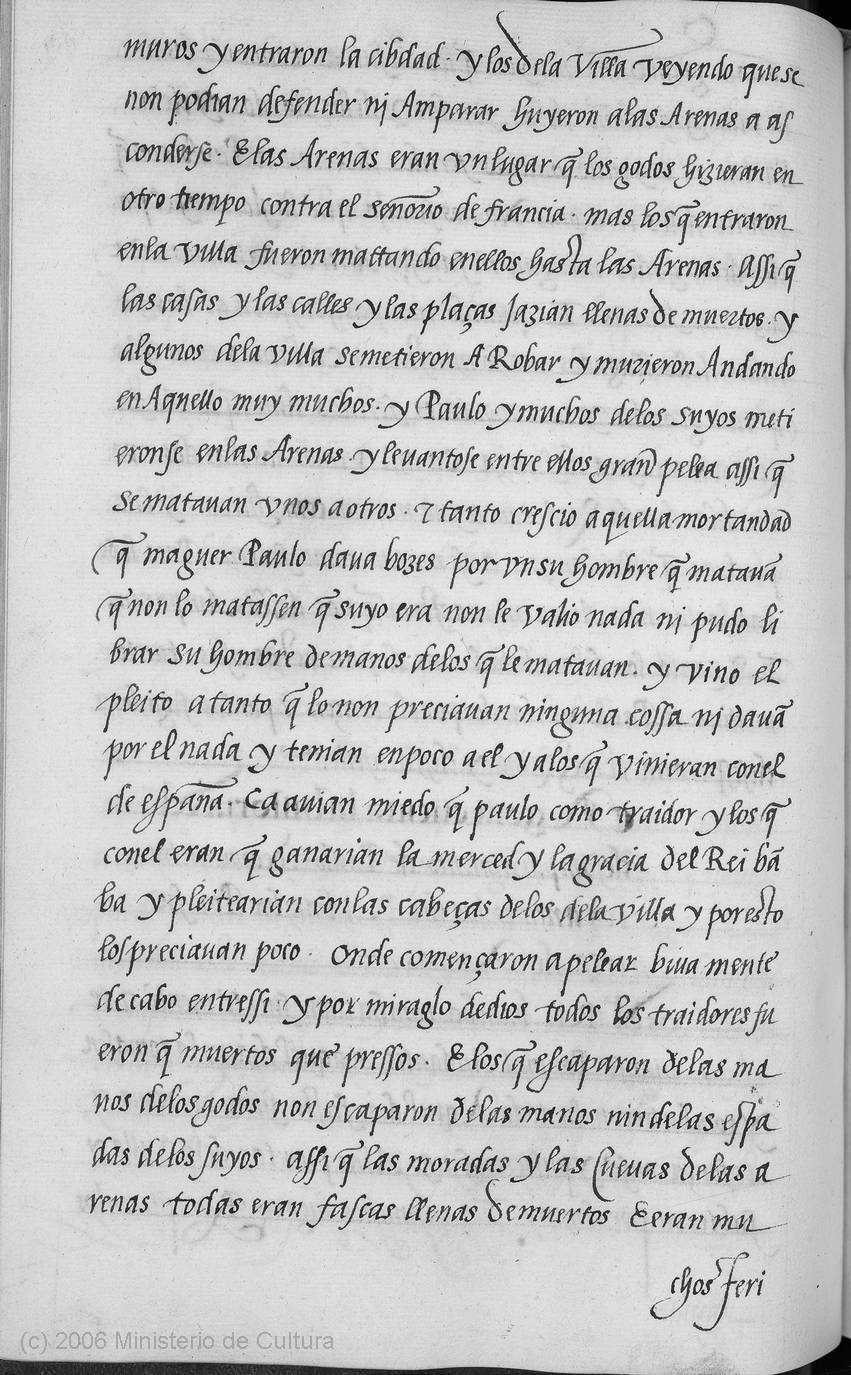 muros y entraron la cibdad · y los dela Villa veyendo que se
non podian defender nj Amparar huyeron alas Arenas a as
conderse · E las Arenas eran vn lugar q̃ los godos hizieran en
otro tiempo contra el señorio de francia · mas los q̃ entraron
enla villa fueron mattando enellos hasta las Arenas · Assi q̃
las casas y las calles y las plaças Jazian llenas de muertos · y
algunos dela villa se metieron A Robar y murieron Andando
en Aquello muy muchos · y Paulo y muchos delos suyos meti
eronse enlas Arenas · y levantose entre ellos gran pelea assi q̃
se matavan vnos a otros · & tanto crescio aquella mortandad
q̃ maguer Paulo dava bozes por vn su hombre q̃ matavã
q̃ non lo matassen q̃ suyo era non le valio nada ni pudo li
brar su hombre de manos delos q̃ le matavan · y vino el
pleito a tanto q̃ lo non preciavan ninguna cossa nj davã
por el nada y tenian en poco a el y alos q̃ vinieran conel
de españa · Ca avian miedo q̃ paulo como traidor y los q̃
conel eran q̃ ganarian la merced y la gracia del Rei bã
ba y pleitearian con las cabeças delos dela villa y por esto
los preciavan poco · onde començaron a pelear biva mente
de cabo entressi · y por miraglo de dios todos los traidores fu
eron q̃ muertos que pressos · E los q̃ escaparon delas ma
nos delos godos non escaparon delas manos nin delas espa
das delos suyos · assi q̃ las moradas y las cuevas delas a
renas todas eran fascas llenas de muertos E eran mu
chos feri
(c) 2006 Ministerio de Cultura